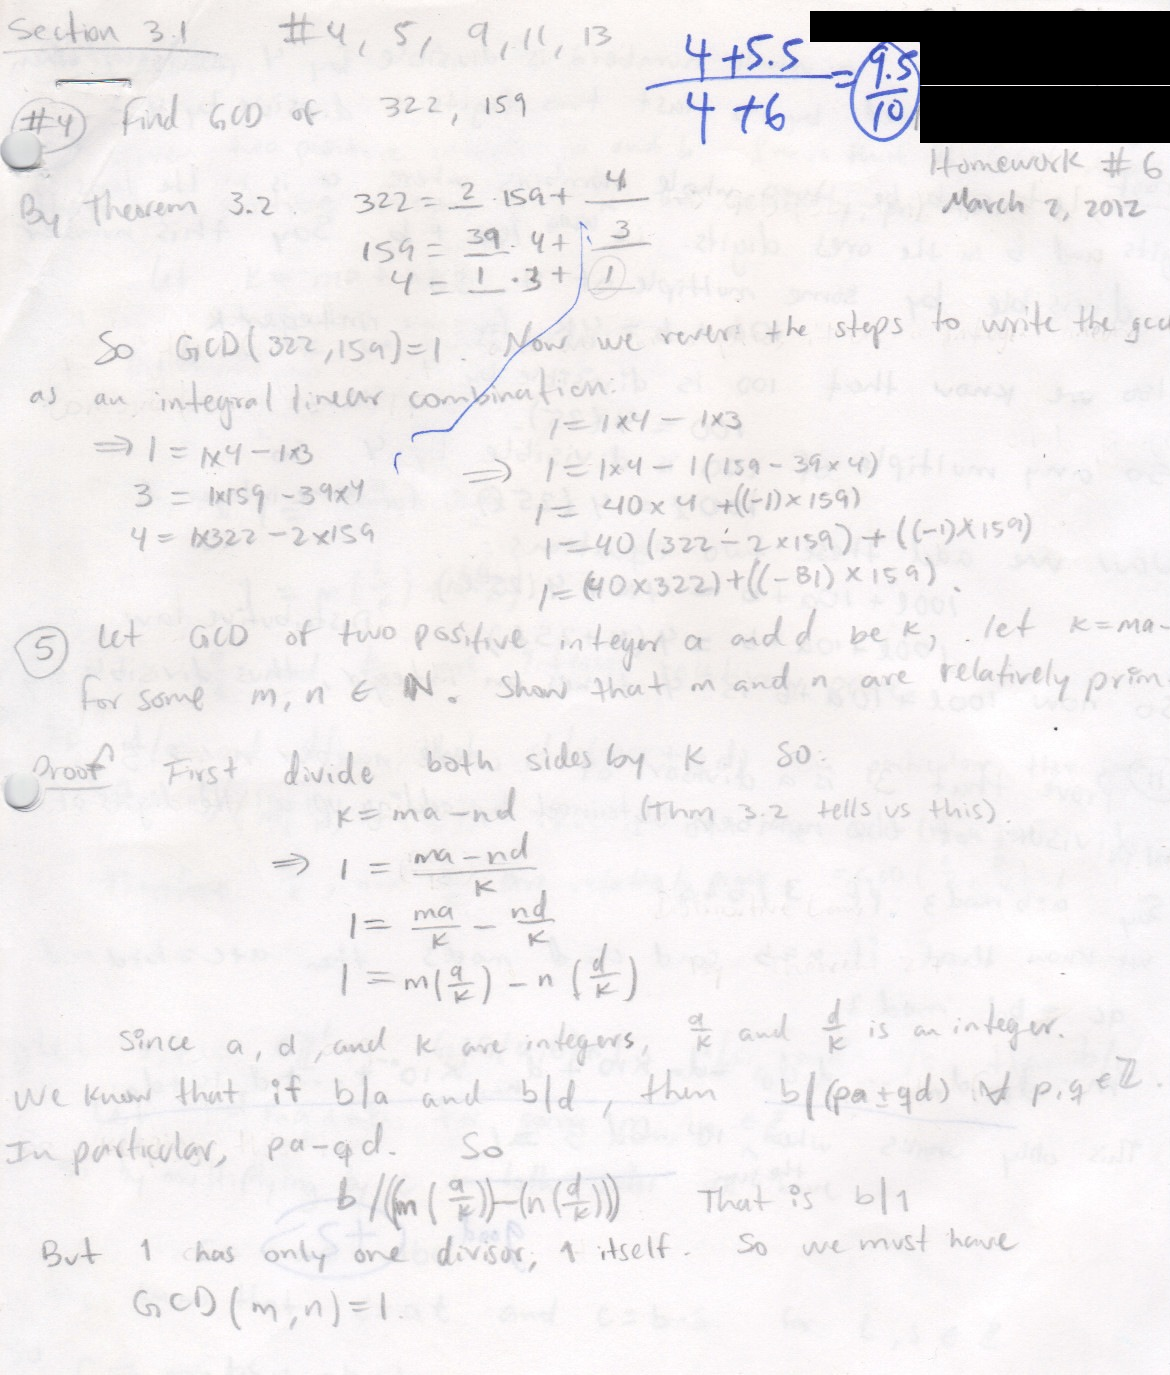 Section 3.1 #4, 5, 9, 11, 13
4+5.5 / 4+6 = 9.5/10
#4) Find GCD of 322, 159
Homework #6
March 2, 2012
By Theorem 3.2. 322 = 2 · 159 + 4
159 = 39 · 4 + 3
4 = 1 · 3 + 1
So GCD(322, 159) = 1. Now we revers the steps to write the gcd
as an integral linear combination:
⇒ 1 = 1x4 - 1x3
3 = 1x159 - 39x4
4 = 1x322 - 2x159
1 = 1x4 - 1x3
⇒ 1 = 1x4 - 1(159 - 39x4)
1 = 40x4 + ((-1)x159)
1 = 40(322 - 2x159) + ((-1)x159)
1 = (40x322) + ((-81)x159).
5) Let GCD of two positive integer a and d be k, let k = ma-
for some m, n ∈ N. Show that m and n are relatively prim
Proof First divide both sides by k So:
k = ma - nd (Thm 3.2 tells us this).
⇒ 1 = (ma - nd)/k
1 = ma/k - nd/k
1 = m(a/k) - n(d/k)
Since a, d, and k are integers, a/k and d/k is an integer.
We know that if b/a and b/d, then b/(pa ± qd) ∀ p, q ∈ Z.
In particular, pa - qd. So
b/((m(a/k)) - (n(d/k))) That is b/1
But 1 has only one divisor, 1 itself. So we must have
GCD(m, n) = 1.